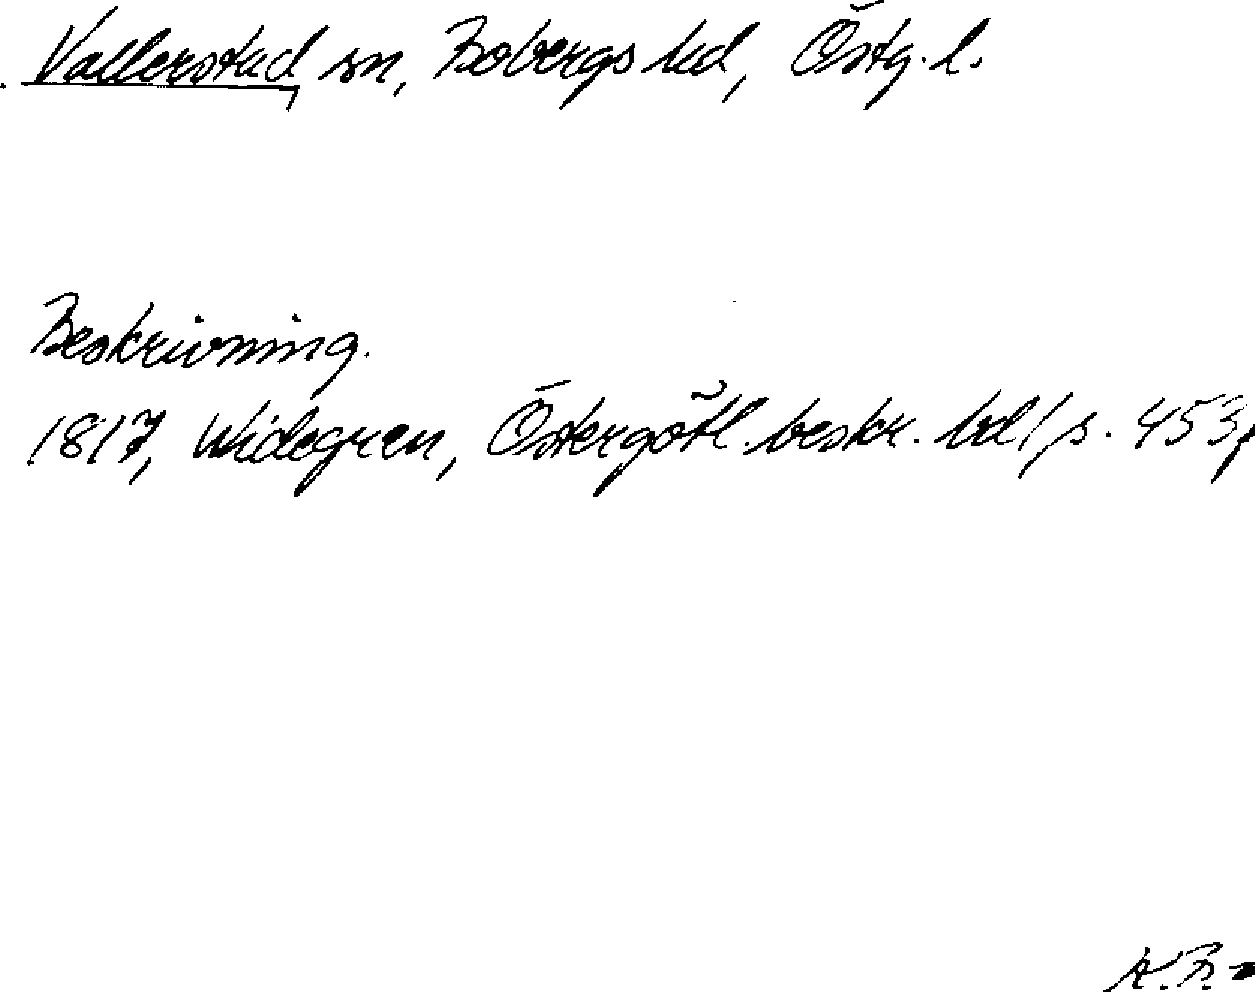 Vallerstad sn, Bobergs hd, Östg. l.
Beskrivning.
1817, Widegren, Östergötl beskr. bd 1 s. 453,
K.B.